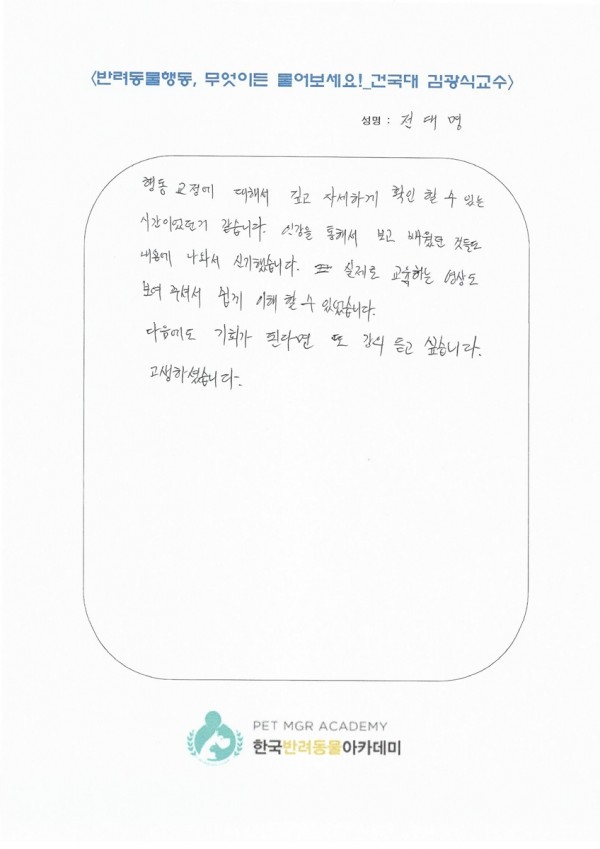 <반려동물행동, 무엇이든 물어보세요!_건국대 김광식교수>
성명 : 전대명
행동 교정에 대해서 깊고 자세하게 확인 할 수 있는
시간이었던거 같습니다. 인강을 통해서 보고 배웠던 것들도
내용에 나와서 신기했습니다. 실제로 교육하는 영상도
보여 주셔서 쉽게 이해 할 수 있었습니다.
다음에도 기회가 된다면 또 강의 듣고 싶습니다.
고생하셨습니다-
PET MGR ACADEMY
한국반려동물아카데미